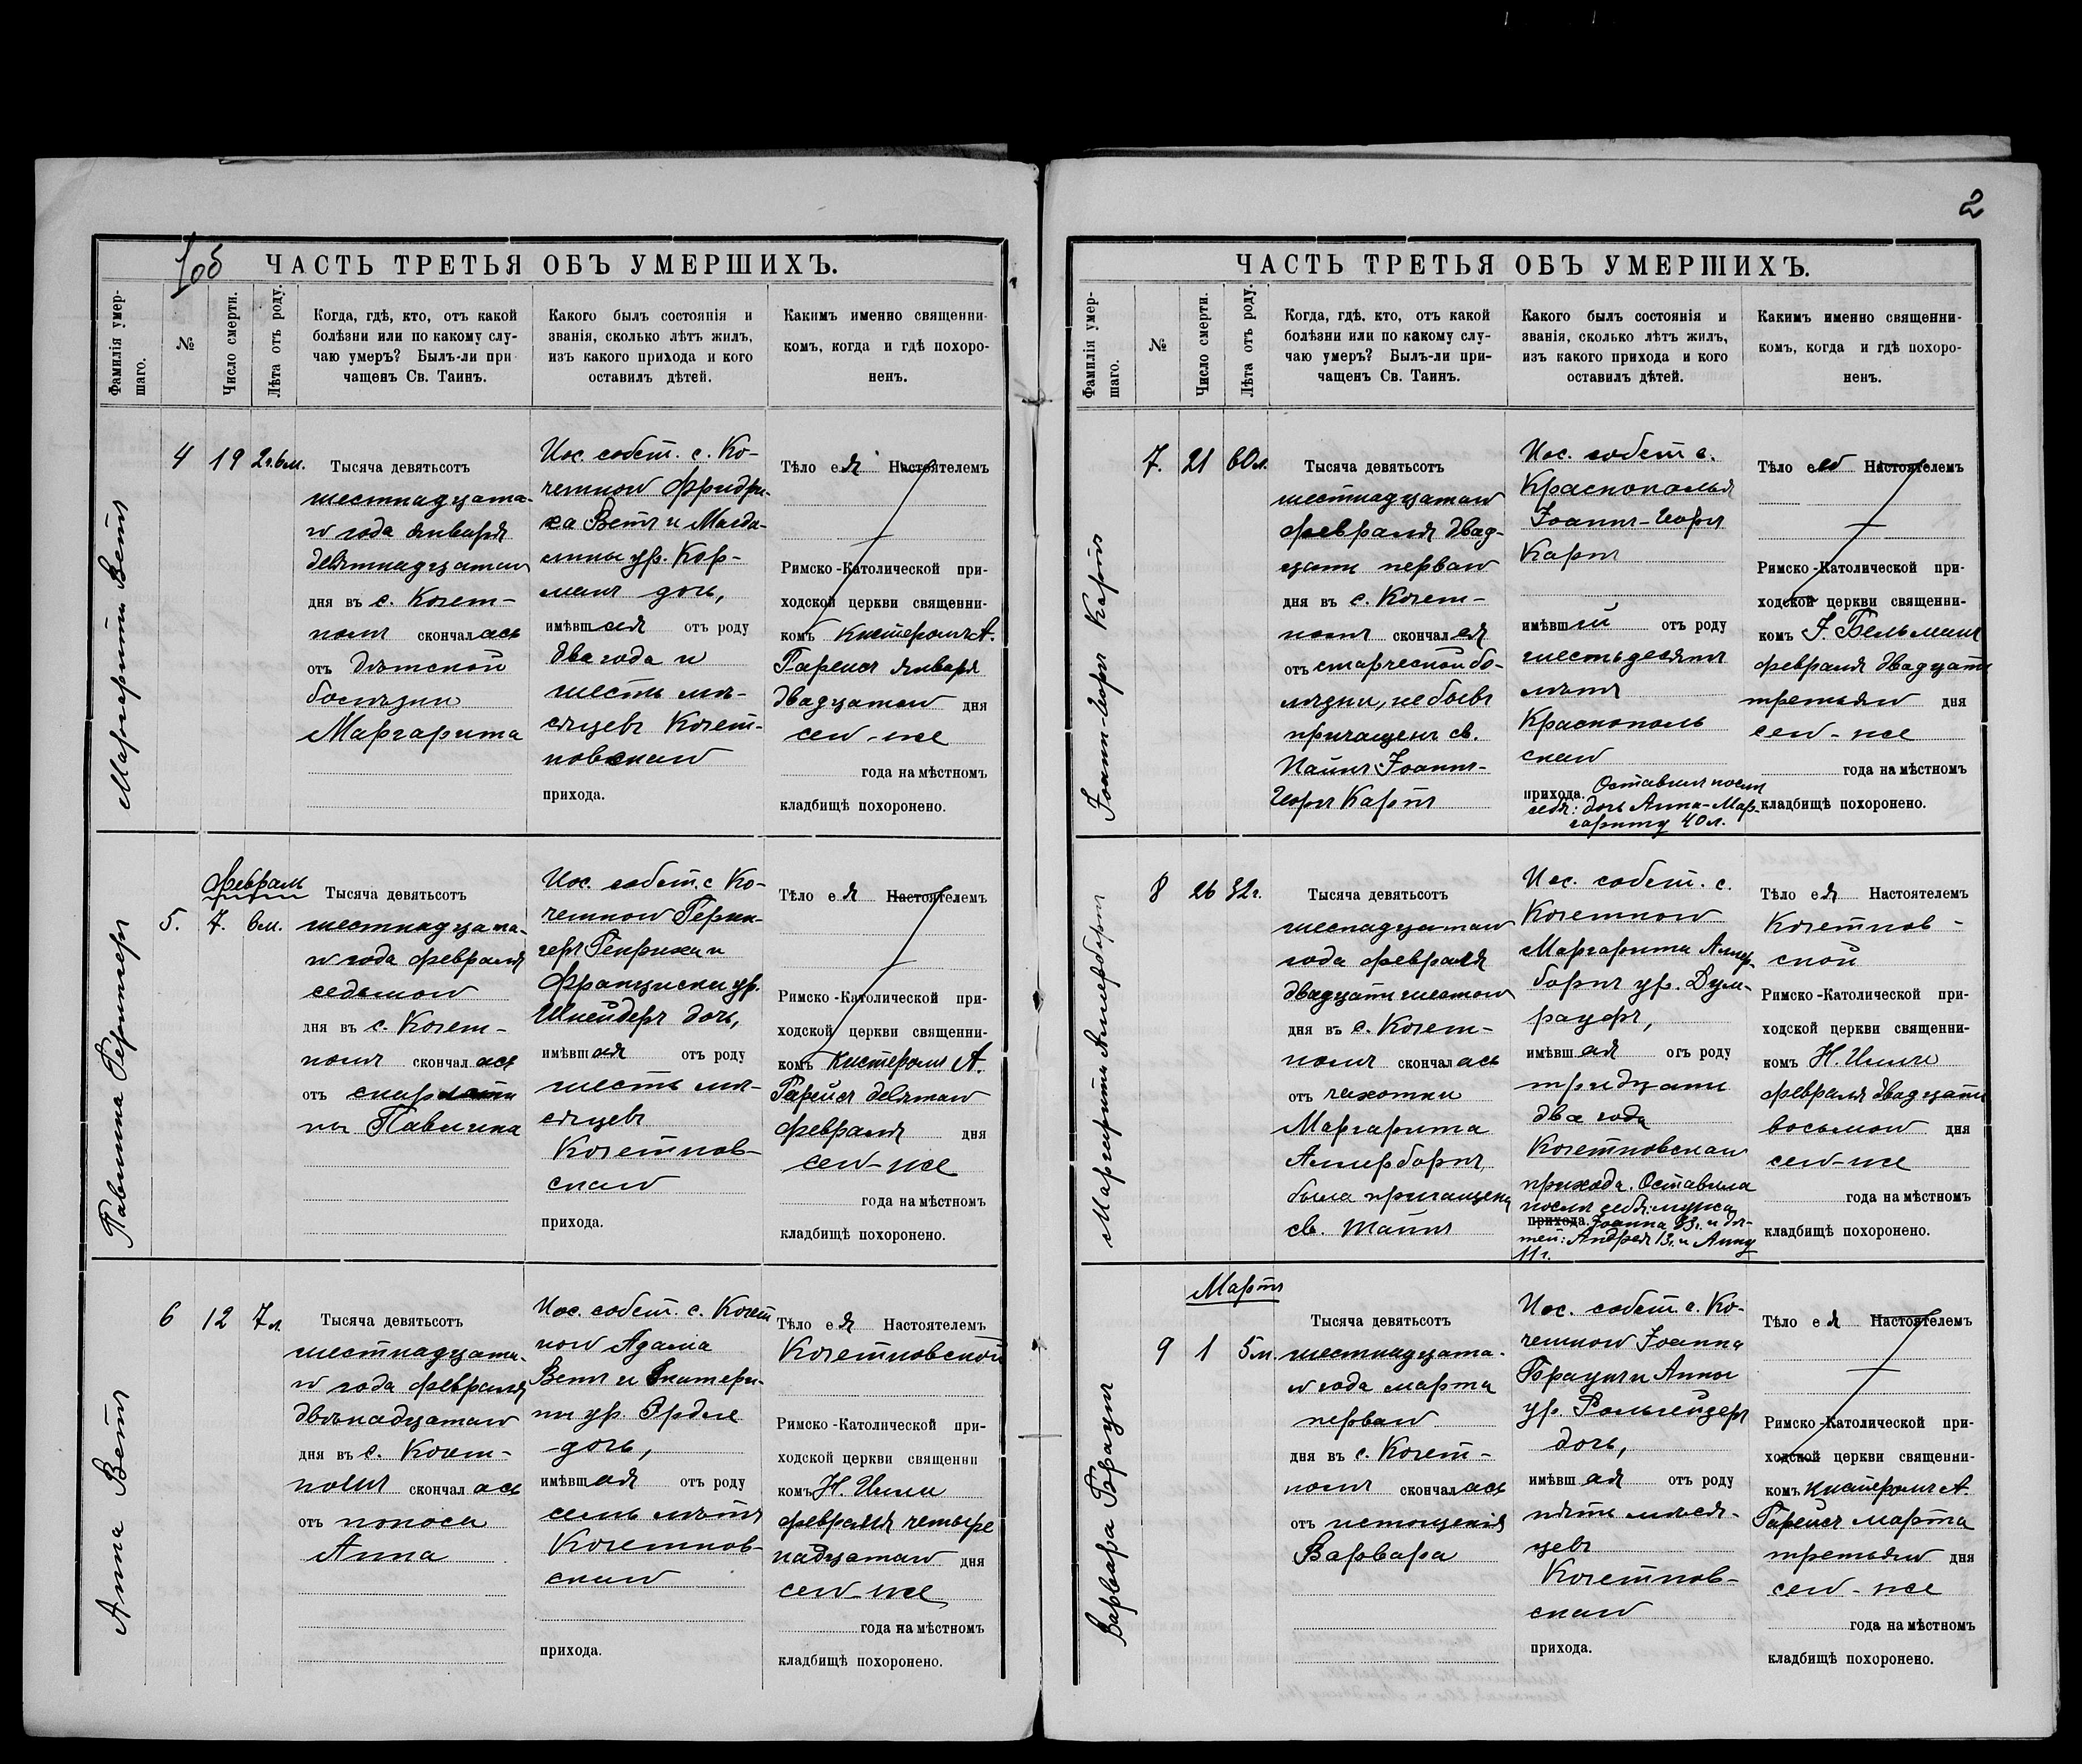 2
1об
ЧАСТЬ ТРЕТЬЯ ОБЪ УМЕРШИХЪ.
Фамилія умер-
шаго.
№
Число смерти.
Лѣта отъ роду.
Когда, гдѣ, кто, отъ какой
болѣзни или по какому слу-
чаю умеръ? Былъ-ли при-
чащенъ Св. Таинъ.
Какого былъ состоянія и
званія, сколько лѣтъ жилъ,
изъ какого прихода и кого
оставилъ дѣтей.
Какимъ именно священни-
комъ, когда и гдѣ похоро-
ненъ.
Маргарита Ветъ
4
19
2г.6м.
Тысяча девятьсотъ
шестнадцата-
го года января
девятнадцатаго
дня въ с. Кочет-
номъ скончалась
отъ дѣтской
болѣзни
Маргарита
Пос. собст. с. Ко-
четного Фридри-
ха Ветъ и Магда-
лины ур. Кор-
манъ дочь,
имѣвшая отъ роду
два года и
шесть мѣ-
сяцевъ Кочет-
новскаго
прихода.
Тѣло ея Настоятелемъ
Римско-Католической при-
ходской церкви священни-
комъ кистеромъ А.
Гарейсъ января
двадцатаго дня
сего-же
года на мѣстномъ
кладбищѣ похоронено.
Павлина Герингеръ
5.
Февраль
7.
6м.
Тысяча девятьсотъ
шестнадцата-
го года февраля
седьмого
дня въ с. Кочет-
номъ скончалась
отъ скарлати
ны Павлина
Пос. собст. с Ко-
четного Герин-
геръ Генриха и
Франциски ур.
Шнейдеръ дочь,
имѣвшая отъ роду
шесть мѣ-
сяцевъ
Кочетнов-
скаго
прихода.
Тѣло ея Настоятелемъ
Римско-Католической при-
ходской церкви священни-
комъ кистеромъ А.
Гарейсъ девятаго
февраля дня
сего-же
года на мѣстномъ
кладбищѣ похоронено.
Анна Ветъ
6
12
7л.
Тысяча девятьсотъ
шестнадцата-
го года февраля
двѣнадцатаго
дня въ с. Кочет-
номъ скончалась
отъ поноса
Анна
Пос. собст. с. Кочет
ного Адама
Ветъ и Екатери-
ны ур. Эрдле
дочь,
имѣвшая отъ роду
семь лѣтъ
Кочетнов-
скаго
прихода.
Тѣло ея Настоятелемъ
Кочетновской
Римско-Католической при-
ходской церкви священни
комъ Н.
февраля четыре
надцатаго дня
сего-же
года на мѣстномъ
кладбищѣ похоронено.
ЧАСТЬ ТРЕТЬЯ ОБЪ УМЕРШИХЪ.
Фамилія умер-
шаго.
№
Число смерти.
Лѣта отъ роду.
Когда, гдѣ, кто, отъ какой
болѣзни или по какому слу-
чаю умеръ? Былъ-ли при-
чащенъ Св. Таинъ.
Какого былъ состоянія и
званія, сколько лѣтъ жилъ,
изъ какого прихода и кого
оставилъ дѣтей.
Какимъ именно священни-
комъ, когда и гдѣ похоро-
ненъ.
Іоаннъ-Георгъ Карпъ
7.
21
60л.
Тысяча девятьсотъ
шестнадцатаго
февраля двад-
цать перваго
дня въ с. Кочет-
номъ скончался
отъ старческой бо-
лѣзни, не бывъ
причащенъ св.
Таинъ Іоаннъ-
Георгъ Карпъ
Пос. собст с.
Краснополья
Іоаннъ-Георгъ
Карпъ
имѣвшій отъ роду
шестьдесятъ
лѣтъ
Краснополь
скаго
прихода. Оставилъ послѣ
себя: дочь Анна-Мар-
гариту 40 л.
Тѣло его Настоятелемъ
Римско-Католической при-
ходской церкви священни-
комъ І. Бельманъ
февраля двадцать
третьяго дня
сего-же
года на мѣстномъ
кладбищѣ похоронено.
8
26
32г.
Тысяча девятьсотъ
шеснадцатаго
года февраля
двадцать шестого
дня въ с. Кочет-
номъ скончалась
отъ чахотки
Маргарита
была причащена
св. таинъ
Пос. собст. с.
Кочетного
Маргарита
ур. Дум-
имѣвшая отъ роду
тридцать
два года
Кочетновскаго
прихода. Оставила
послѣ себя: мужа
прихода. Іоанна 33г. и дѣ-
тей: Андрея 13г. и Анну
11г.
Тѣло ея Настоятелемъ
Кочетнов-
ской
Римско-Католической при-
ходской церкви священни-
комъ Н.
февраля двадцать
восьмого дня
сего-же
года на мѣстномъ
кладбищѣ похоронено.
Варвара Браунъ
9
Мартъ
1
5м.
Тысяча девятьсотъ
шестнадцата-
го года марта
перваго
дня въ с. Кочет-
номъ скончалась
отъ истощенія
Варвара
Пос. собст. с. Ко-
четного Іоанна
Браунъ и Анны
ур.
дочь,
имѣвшая отъ роду
пять мѣся-
цевъ
Кочетнов-
скаго
прихода.
Тѣло ея Настоятелемъ
Римско-Католической при-
ходской церкви священни-
комъ кистеромъ А.
Гарейсъ марта
третьяго дня
сего-же
года на мѣстномъ
кладбищѣ похоронено.